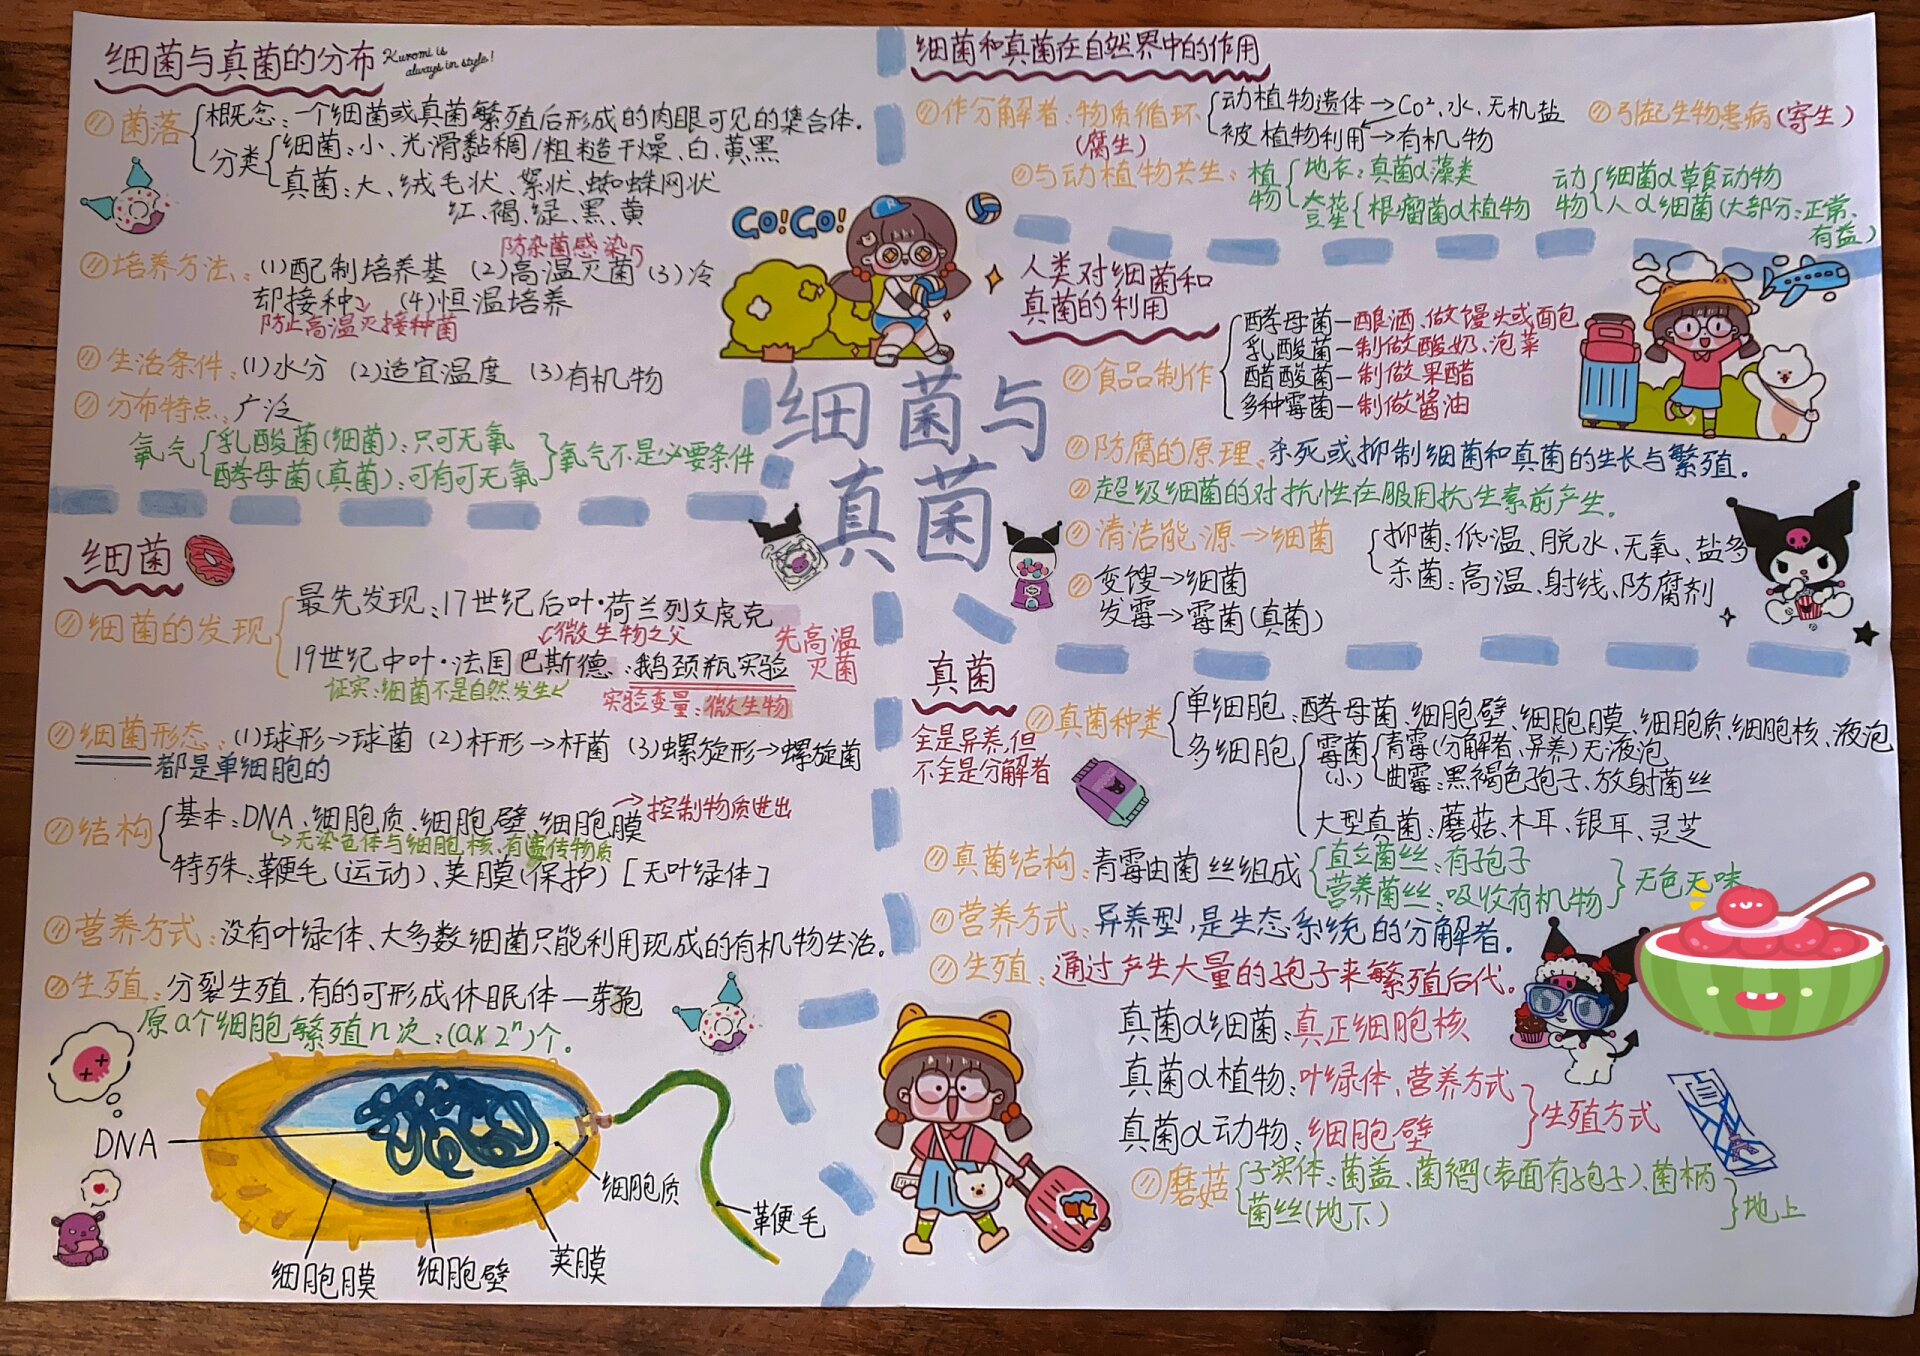 细菌与真菌的分布
Kuromi is
always in style!
菌落
概念:一个细菌或真菌繁殖后形成的肉眼可见的集合体.
分类
细菌:小、光滑黏稠/粗糙干燥、白、黄黑
真菌:大、绒毛状、絮状、蜘蛛网状
红、褐、绿、黑、黄
防杂菌感染
培养方法:(1)配制培养基 (2)高温灭菌 (3)冷
却接种 (4)恒温培养
防止高温灭接种菌
生活条件:(1)水分 (2)适宜温度 (3)有机物
分布特点:广泛
氧气
乳酸菌(细菌):只可无氧
酵母菌(真菌):可有可无氧
氧气不是必要条件
细菌
细菌的发现
最先发现:17世纪后叶·荷兰列文虎克
微生物之父
先高温
灭菌
19世纪中叶·法国巴斯德:鹅颈瓶实验
证实:细菌不是自然发生
实验变量:微生物
细菌形态:(1)球形→球菌 (2)杆形→杆菌 (3)螺旋形→螺旋菌
都是单细胞的
结构
基本:DNA、细胞质、细胞壁、细胞膜→控制物质进出
无染色体与细胞核、有遗传物质
特殊:鞭毛(运动)、荚膜(保护) [无叶绿体]
营养方式:没有叶绿体、大多数细菌只能利用现成的有机物生活。
生殖:分裂生殖,有的可形成休眠体—芽孢
原a个细胞繁殖n次:(a×2ⁿ)个。
DNA
细胞膜
细胞壁
荚膜
细胞质
鞭毛
GO!GO!
细菌与
真菌
细菌和真菌在自然界中的作用
作分解者:物质循环
(腐生)
动植物遗体→Co²、水、无机盐
被植物利用→有机物
引起生物患病(寄生)
与动植物共生:
植物
地衣:真菌α藻类
豆茎{根瘤菌α植物
动物
细菌α草食动物
人α细菌(大部分:正常、
有益)
人类对细菌和
真菌的利用
食品制作
酵母菌—酿酒、做馒头或面包
乳酸菌—制做酸奶、泡菜
醋酸菌—制做果醋
多种霉菌—制做酱油
防腐的原理:杀死或抑制细菌和真菌的生长与繁殖.
超级细菌的对抗性在服用抗生素前产生.
清洁能源→细菌
变馊→细菌
发霉→霉菌(真菌)
抑菌:低温、脱水、无氧、盐多
杀菌:高温、射线、防腐剂
真菌
全是异养,但
不全是分解者
真菌种类
单细胞:酵母菌、细胞壁、细胞膜、细胞质、细胞核、液泡
多细胞
霉菌
(小)
青霉(分解者、异养)无液泡
曲霉:黑褐色孢子、放射菌丝
大型真菌:蘑菇、木耳、银耳、灵芝
真菌结构:青霉由菌丝组成
直立菌丝:有孢子
营养菌丝:吸收有机物
无色无味
营养方式:异养型,是生态系统的分解者。
生殖:通过产生大量的孢子来繁殖后代。
真菌α细菌:真正细胞核
真菌α植物:叶绿体、营养方式
真菌α动物:细胞壁
生殖方式
蘑菇
子实体:菌盖、菌褶(表面有孢子)、菌柄
菌丝(地下)
地上